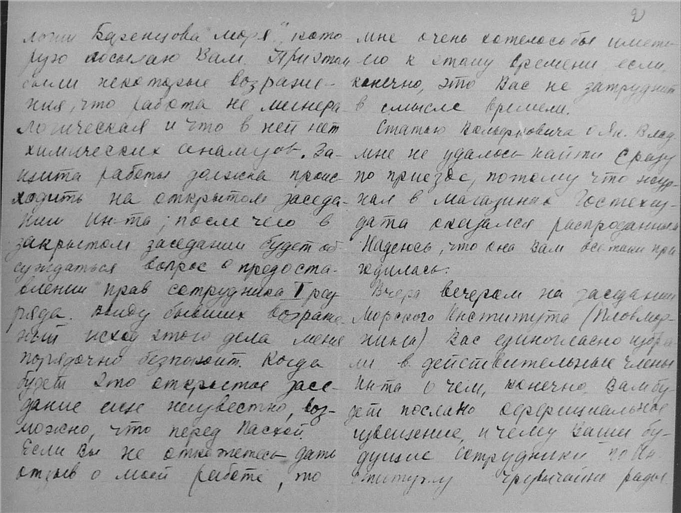 логии Баренцова моря", кото
рую посылаю Вам. При этом
были некоторые возраже-
ния, что работа не минера
логическая и что в ней нет
химических анализов. За-
щита работы должна проис-
ходить на открытом заседа-
нии Ин-та; после чего в
закрытом заседании будет об
суждаться вопрос о предоста-
влении прав сотрудника I раз
ряда. Ввиду бывших возраже
ний исход этого дела меня
порядочно безпокоит. Когда
будет это открытое засе-
дание мне неизвестно, воз-
можно, что перед Пасхой.
Если Вы не откажетесь дать
отзыв о моей работе, то
2
мне очень хотелось бы иметь
его к этому времени если,
конечно, это Вас не затруднит
в смысле времени.
Статью о Влад.
мне не удалось найти сразу
по приезде, потому что жур
нал в магазинах Госиз
дата оказался распроданным
Надеюсь, что она Вам всетаки при
годилась.
Вчера вечером на заседании
Морского Института (Пловмор
нина) Вас единогласно избра
ли в действительные члены
Ин-та о чем, конечно, Вам бу
дет послано оффициальное
извещение, и чему Ваши бу-
дущие сотрудники по Ин
ституту чрезвычайно рады.